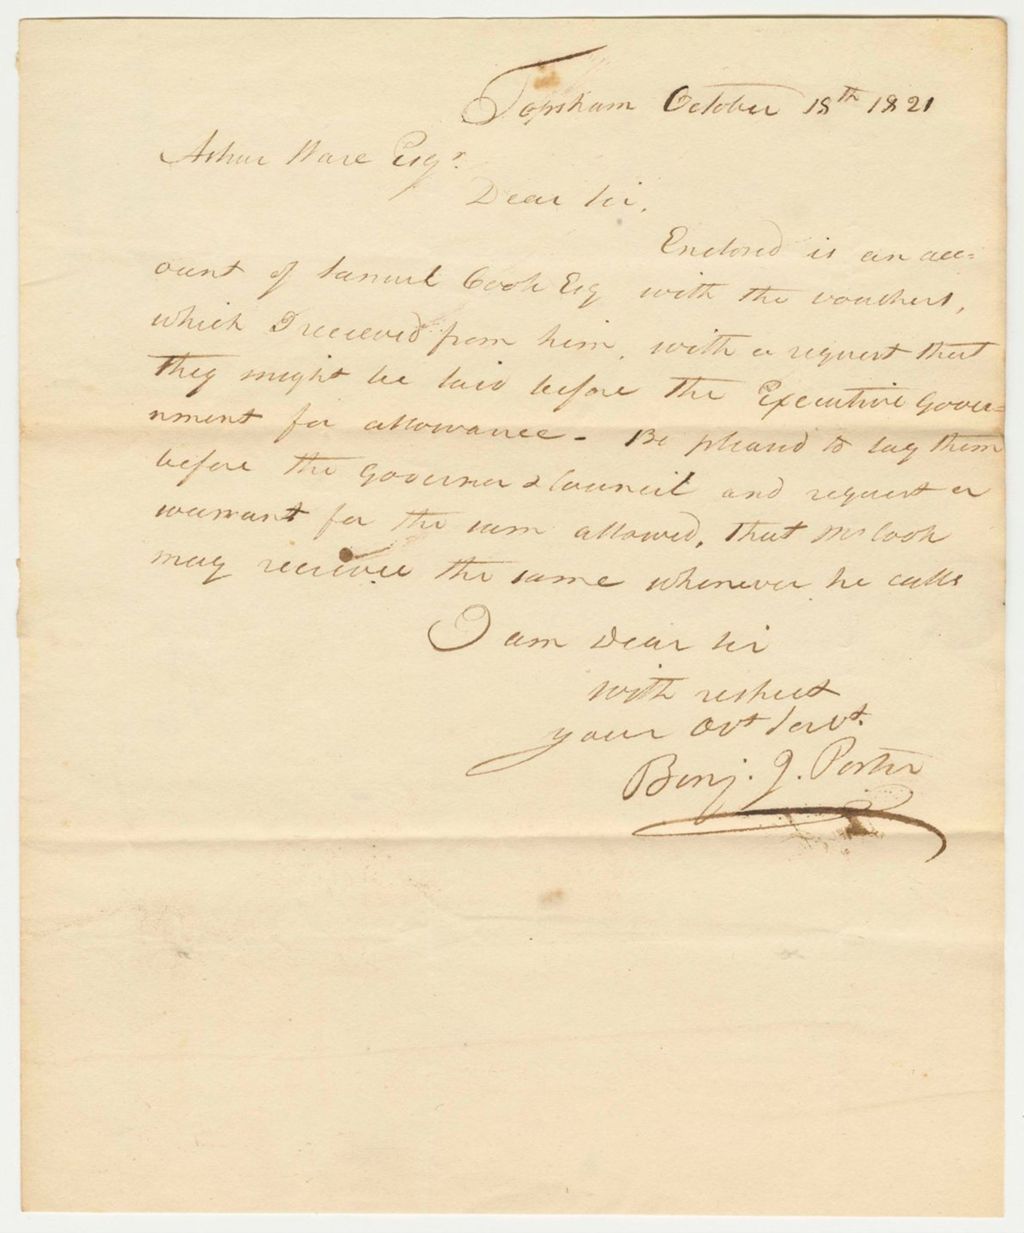 Topsham October 18th 1821
Ashur Ware Esqr.
Dear Sir,
Enclosed is an acc=
ount of Samuel Cook Esq with the vouchers,
which I receieved from him, with a request that
they might be laid before the Executive Gover=
nment for allowance - Be pleased to lay them
before the Governor & Council and request a
warrant for the sum allowed, that Mr Cook
may recieve the same whenever he calls
I am Dear Sir
with respect
your Obt Servt.
Benj. J. Porter